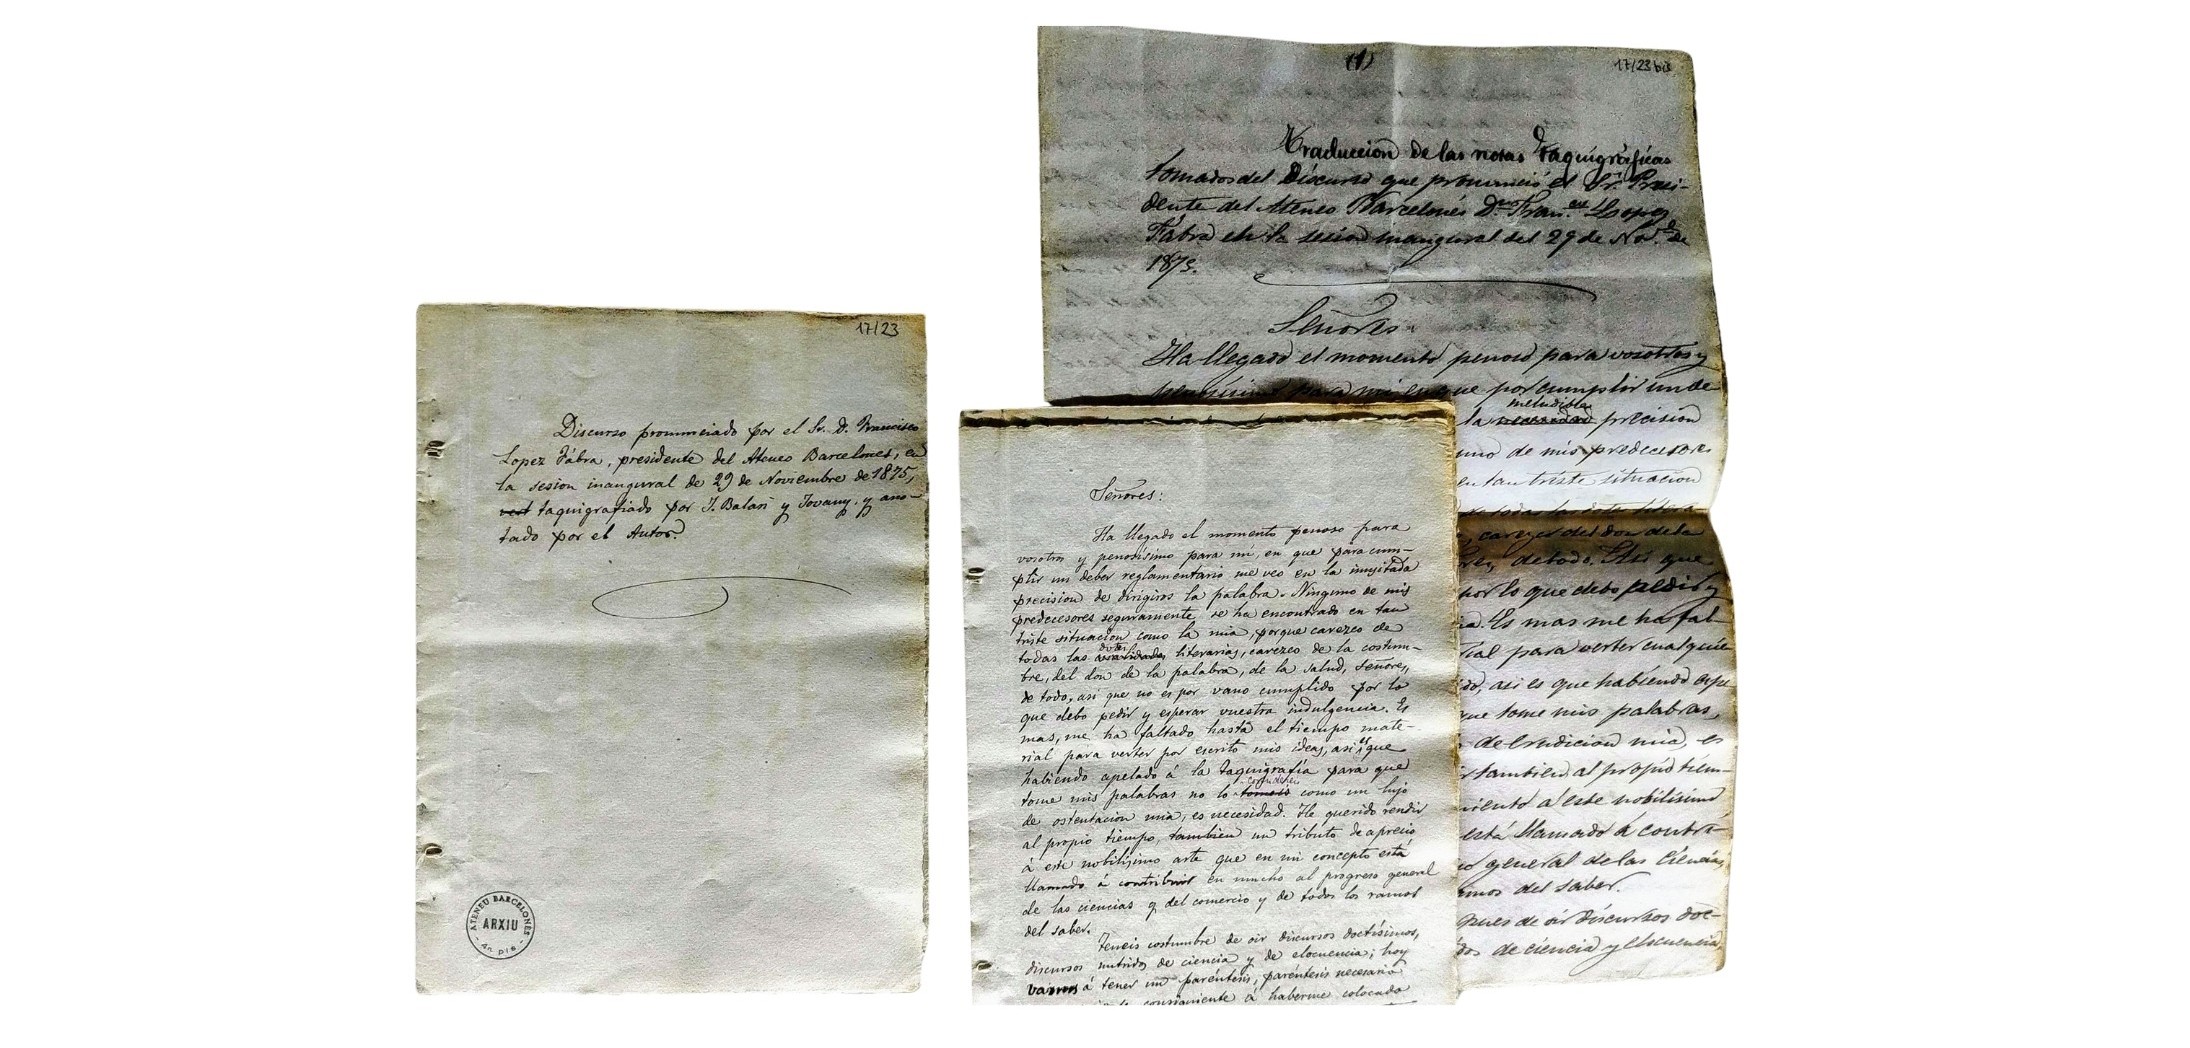 17/23
Discurso pronunciado por el Sr. D. Francisco
Lopez Fábra, presidente del Ateneo Barcelonés, en
la sesion inaugural de 29 de Noviembre de 1875,
taquigrafiado por J. Balari y Jovany, y ano-
tado por el Autor.
ATENEU BARCELONÈS
ARXIU
4rt pis
Señores:
Ha llegado el momento penoso para
vosotros y penosísimo para mí, en que para cum-
plir un deber reglamentario me veo en la inusitada
precision de dirigiros la palabra. Ninguno de mis
predecesores seguramente se ha encontrado en tan
triste situacion como la mia, porque carezco de
todas las dotes literarias, carezco de la costum-
bre, del don de la palabra, de la salud, señores,
de todo, asi que no es por vano cumplido por lo
que debo pedir y esperar vuestra indulgencia. Es
mas, me ha faltado hasta el tiempo mate-
rial para verter por escrito mis ideas, asi es que
habiendo apelado á la taquigrafía para que
tome mis palabras no lo considereis tomeis como un lujo
de ostentacion mia, es necesidad. He querido rendir
al propio tiempo, tambien un tributo de aprecio
á este nobilísimo arte que en mi concepto está
llamado á contribuir en mucho al progreso general
de las ciencias y del comercio y de todos los ramos
del saber.
Teneis costumbre de oir discursos doctísimos,
discursos nutridos de ciencia y de elocuencia; hoy
vamos á tener un paréntesis, paréntesis necesario
consiguiente á haberme colocado
(1)
17/23 bis
Traduccion de las notas taquigráficas
tomadas del Discurso que pronunció el Sr. Presi-
dente del Ateneo Barcelonés Dn. Fran.co Lopez
Fabra en la sesion inaugural del 29 de Nov.e de
1875.
Señores
Ha llegado el momento penoso para vosotros y
penosísimo para mí en que por cumplir un de
la ineludible necesidad precision
uno de mis predecesores
en tan triste situacion
de todas las
carezco del don de la
de todo. Así que
por lo que debo pedir y
Es mas me ha fal-
rial para verter cualquier
asi es que habiendo ape
que tome mis palabras,
de erudicion mia, es
tambien al propio tiem-
á este nobilísimo
está llamado á contri-
general de las ciencias,
ramos del saber.
pues de oir discursos doc-
dos de ciencia y elocuencia